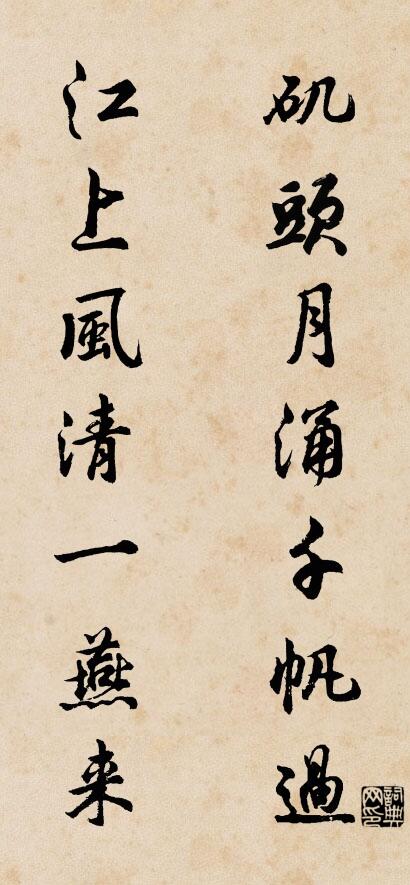 矶頭月涌千帆過
江上風清一燕来
詞典网印